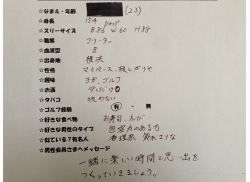 ☆なまえ・年齢 (23)
☆身長 154
☆スリーサイズ B 86 W 60 H 88
☆職業 フリーター
☆血液型 B
☆出身地 横浜
☆性格 マイペース、寂しがりや
☆趣味 ヨガ、ゴルフ
☆お酒
☆タバコ 吸わない
☆ゴルフ経験 有・無
☆好きな食べ物 お寿司、えび
☆好きな男性のタイプ 包容力のある方
☆似ている？有名人
☆男性会員さまへメッセージ
一緒に楽しい時間と思い出を
つくっていきましょう。